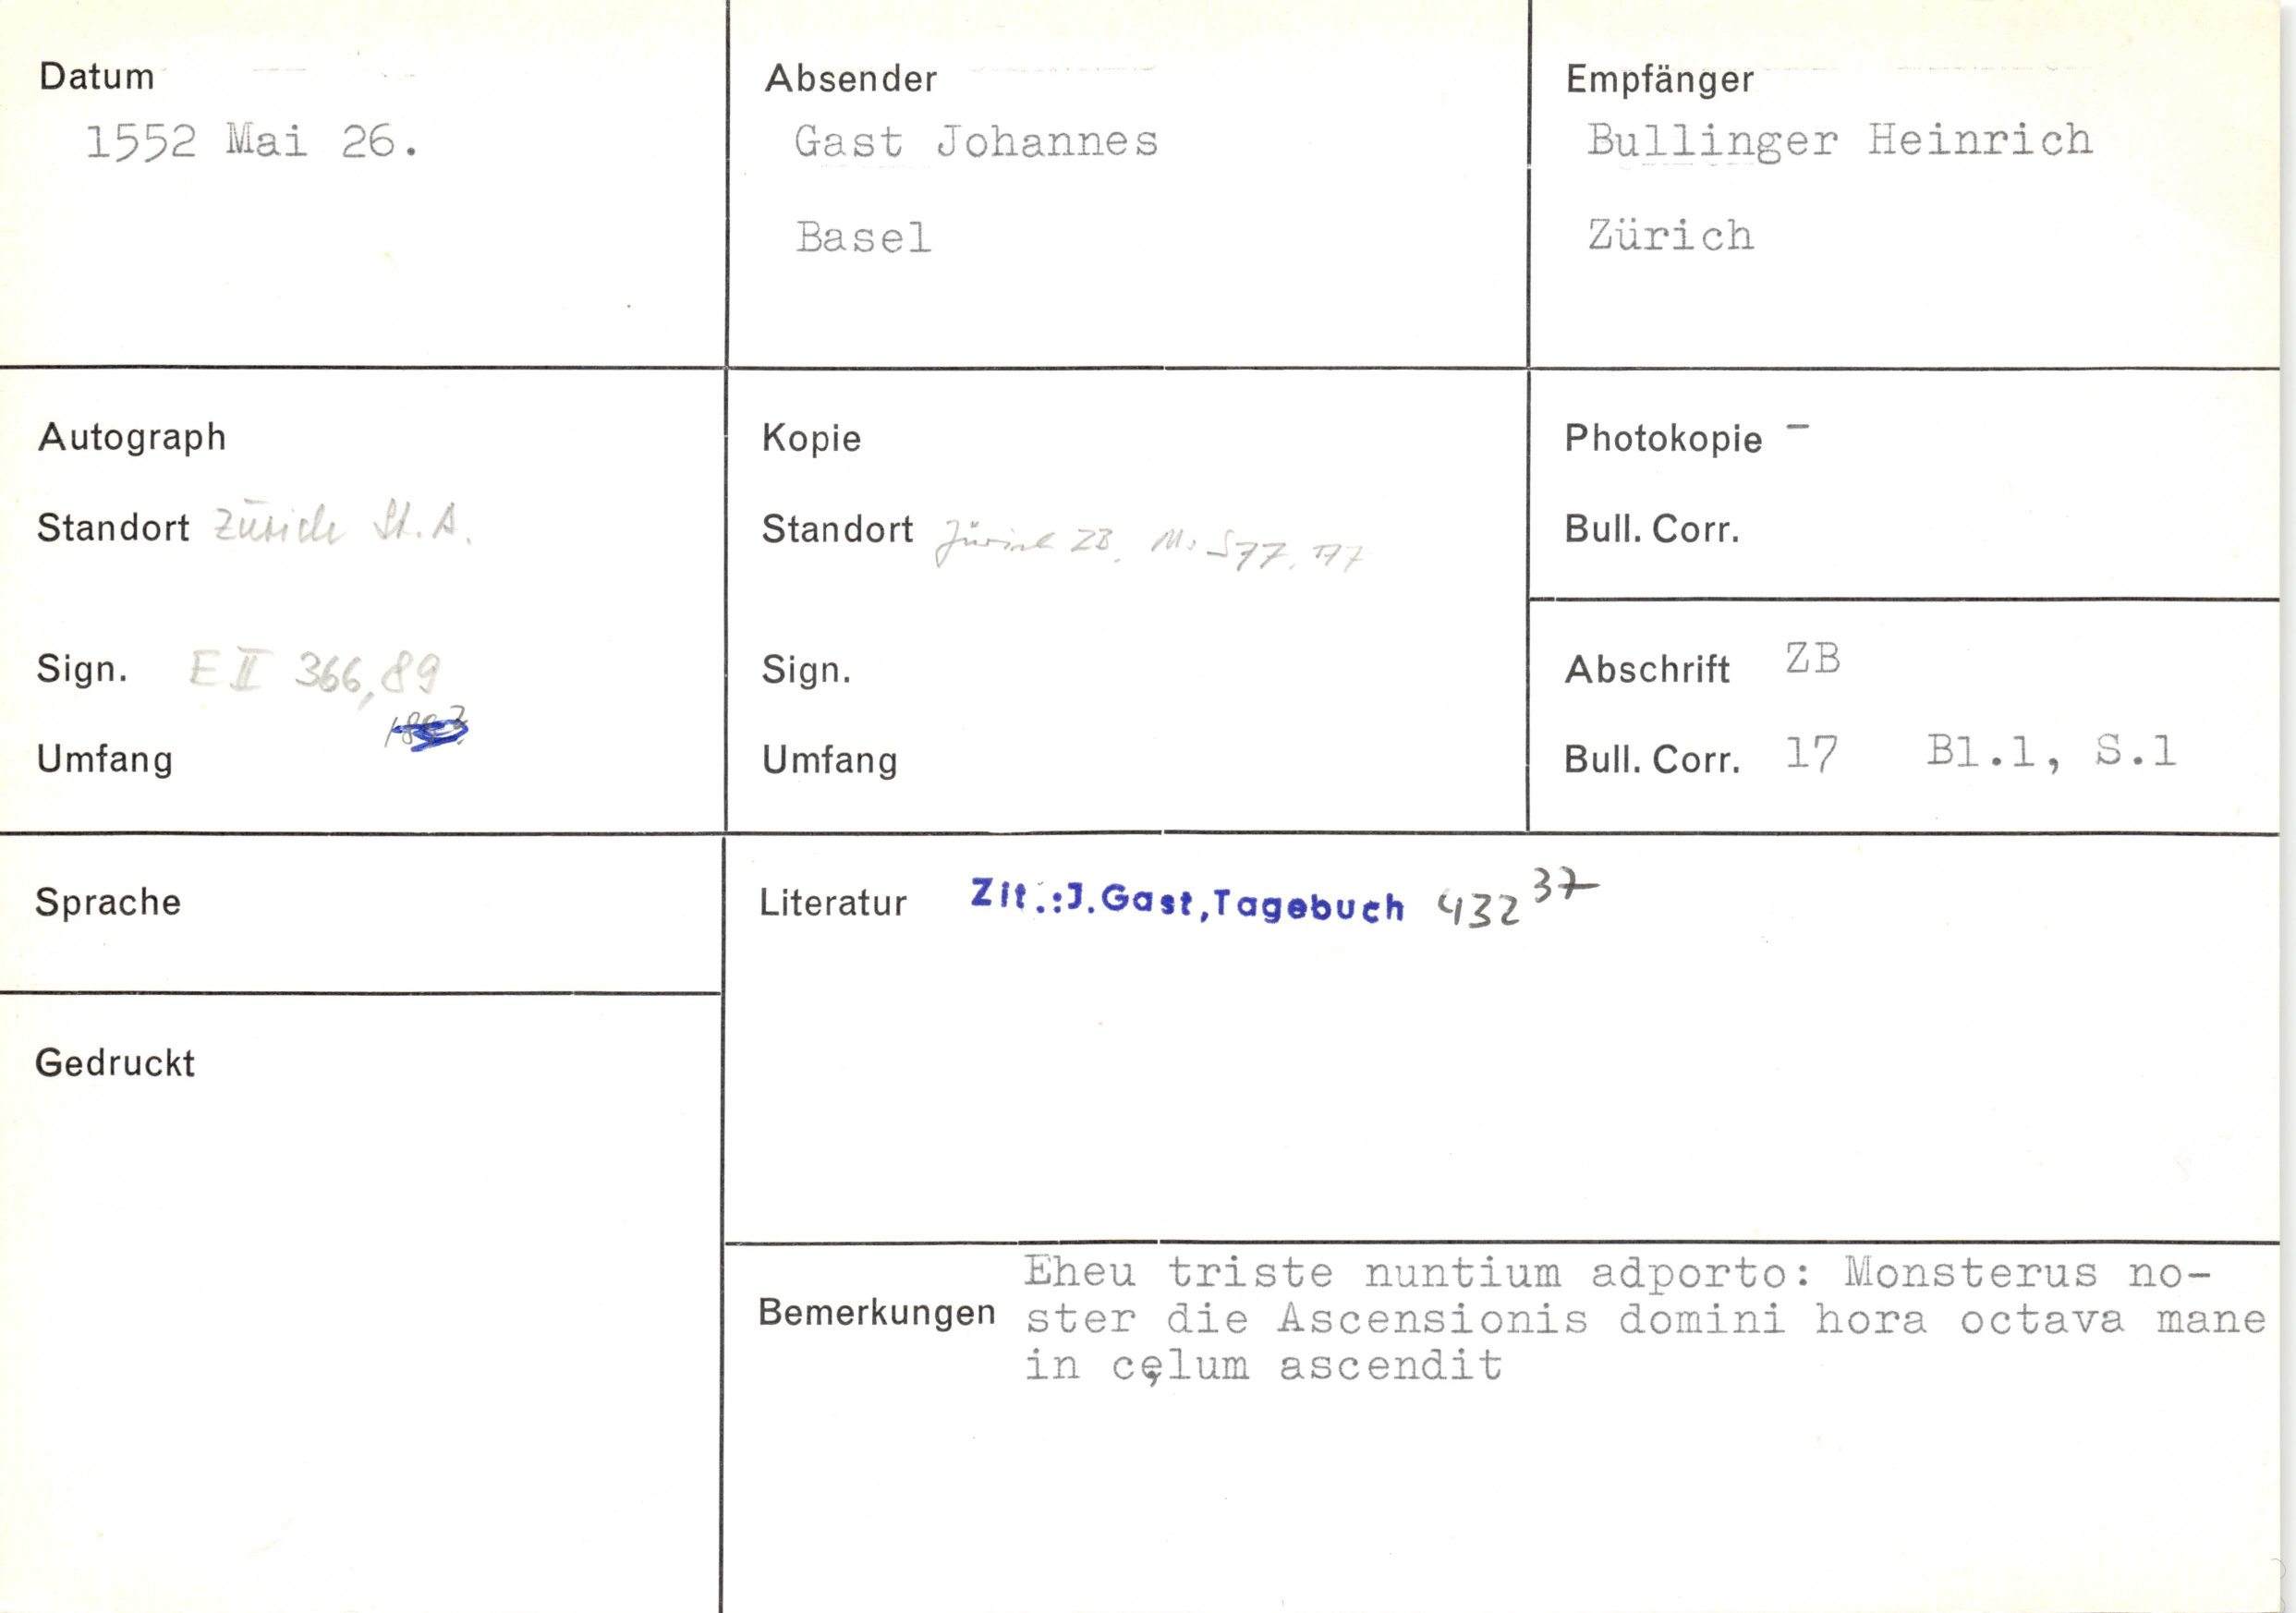 Datum
1552 Mai 26.
Absender
Gast Johannes
Basel
Empfänger
Bullinger Heinrich
Zürich
Autograph
Standort Zürich St. A.
Sign. E II 366,89
Umfang
Kopie
Standort Zürich ZB. Ms S 77,
Sign.
Umfang
Photokopie -
Bull. Corr.
Abschrift ZB
Bull. Corr. 17 Bl.1, S.1
Sprache
Gedruckt
Literatur Zit.:J.Gast,Tagebuch 432 37
Bemerkungen
Eheu triste nuntium adporto: Monsterus no-
ster die Ascensionis domini hora octava mane
in cęlum ascendit